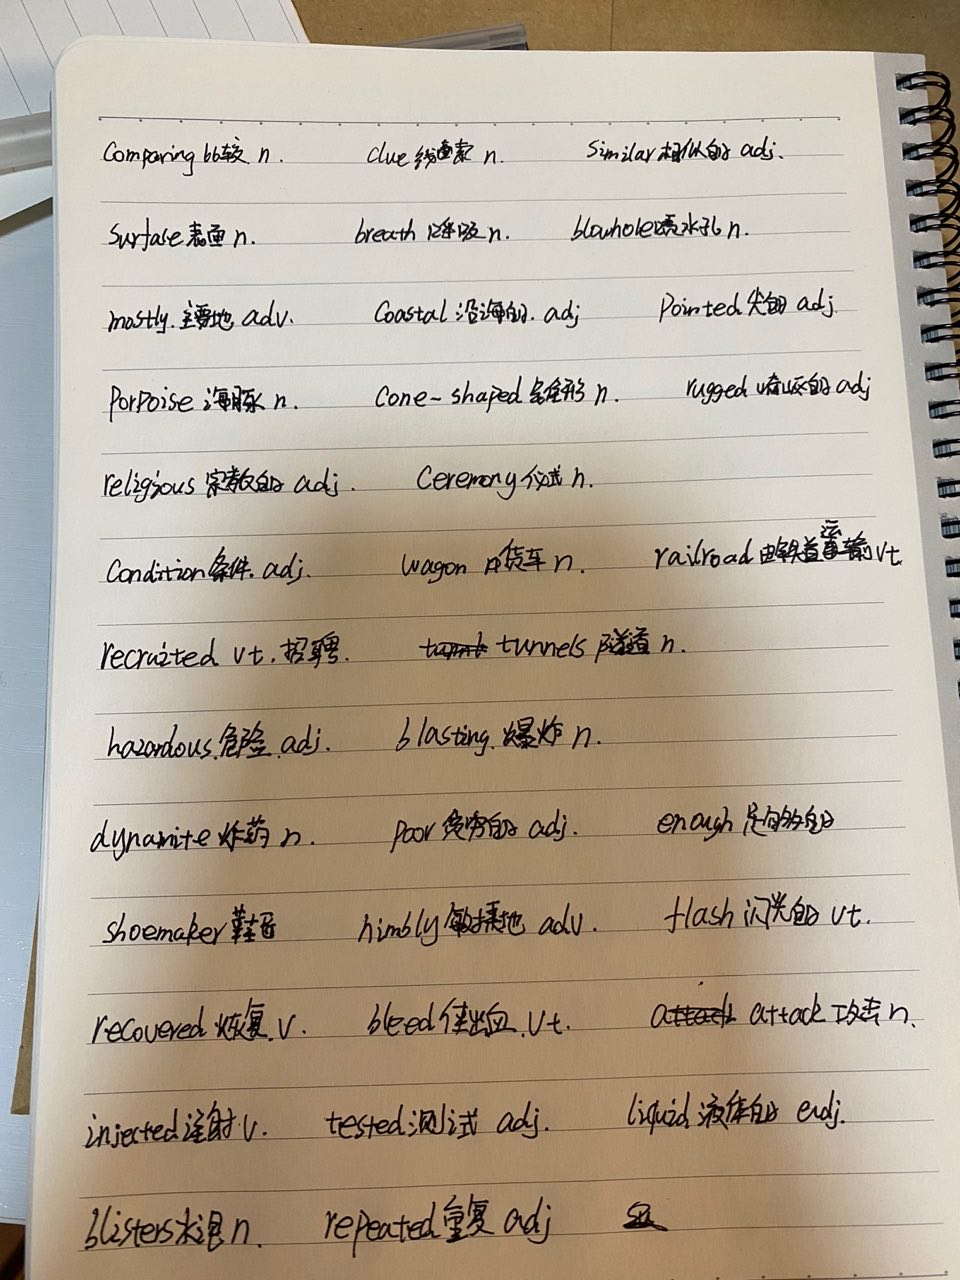 Comparing 比较 n. clue 线索 n. Similar 相似的 adj.
Surfase 表面 n. breath 呼吸 n. blowhole 喷水孔 n.
mostly. 主要地 adv. Coastal 沿海的. adj Pointed 尖的 adj.
Porpoise 海豚 n. Cone-shaped 锥形 n. rugged 崎岖的 adj
religious 宗教的 adj. Ceremony 仪式 n.
Condition 条件. adj. wagon 货车 n. railroad 由铁道运输 vt.
recruited vt. 招聘. tunnels 隧道 n.
hazardous. 危险. adj. blasting. 爆炸 n.
dynamite 炸药 n. poor 贫穷的 adj. enough 足够的
shoemaker 鞋匠 nimbly 敏捷地 adv. flash 闪光的 vt.
recovered 恢复. v. bleed 使出血. vt. attack 攻击 n.
injected 注射 v. tested 测试 adj. liquid 液体的 adj.
blisters n. repeated 重复 adj